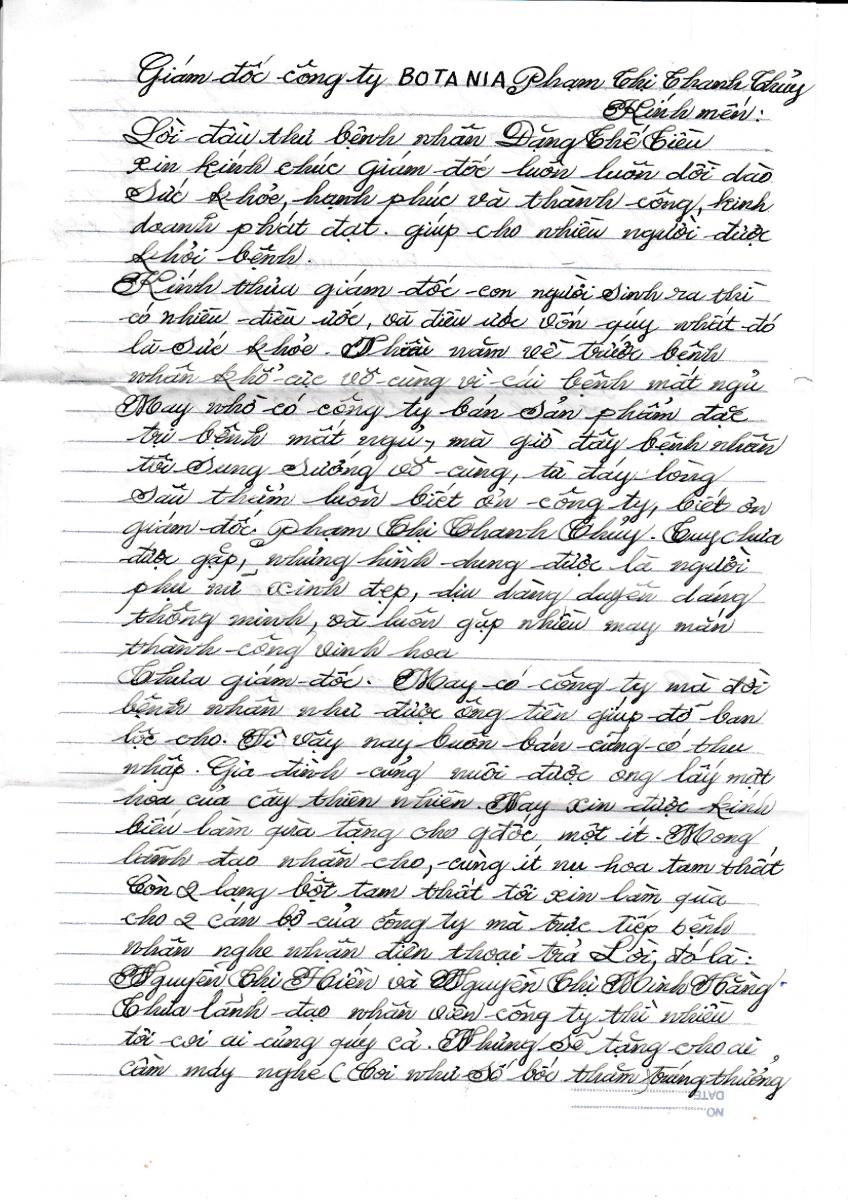 Giám đốc công ty BOTANIA Phạm Thị Thanh Thủy
Kính mến:
Lời đầu thư bệnh nhân Đặng Thế Tiều
xin kính chúc giám đốc luôn luôn dồi dào
sức khỏe, hạnh phúc và thành công, kinh
doanh phát đạt. giúp cho nhiều người được
khỏi bệnh.
Kính thưa giám đốc con người sinh ra thì
có nhiều điều ước, và điều ước vốn quý nhất đó
là sức khỏe. Nhiều năm về trước bệnh
nhân khổ cực vô cùng vì cái bệnh mất ngủ
May nhờ có công ty bán sản phẩm đặc
trị bệnh mất ngủ, mà giờ đây bệnh nhân
tôi sung sướng vô cùng, từ đáy lòng
sâu thẳm luôn biết ơn công ty, biết ơn
giám đốc Phạm Thị Thanh Thủy. Tuy chưa
được gặp, nhưng hình dung được là người
phụ nữ xinh đẹp, dịu dàng duyên dáng
thông minh, và luôn gặp nhiều may mắn
thành công vinh hoa
Thưa giám đốc. May có công ty mà đời
bệnh nhân như được ông tiên giúp đỡ ban
lộc cho. Vì vậy nay buôn bán cũng có thu
nhập. Gia đình cũng nuôi được ong lấy mật
hoa của cây thiên nhiên. Nay xin được kính
biếu làm qùa tặng cho gđốc một ít. Mong
lãnh đạo nhận cho, cùng ít nụ hoa tam thất
Còn 2 lạng bột tam thất tôi xin làm qùa
cho 2 cán bộ của công ty mà trực tiếp bệnh
nhân nghe nhận điện thoại trả Lời, đó là:
Nguyễn Thị Hiền và Nguyễn Thị Minh Hằng
Thưa lãnh đạo nhân viên công ty thì nhiều
tôi coi ai cũng qúy cả. Nhưng sẽ tặng cho ai
cầm máy nghe (Coi như số bốc thăm trúng thưởng
DATE
NO